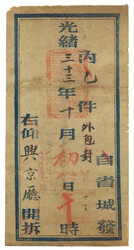 光緒
丙乙件外包封
自省城發
三十三年十月初八日午時
右仰興京廳開拆